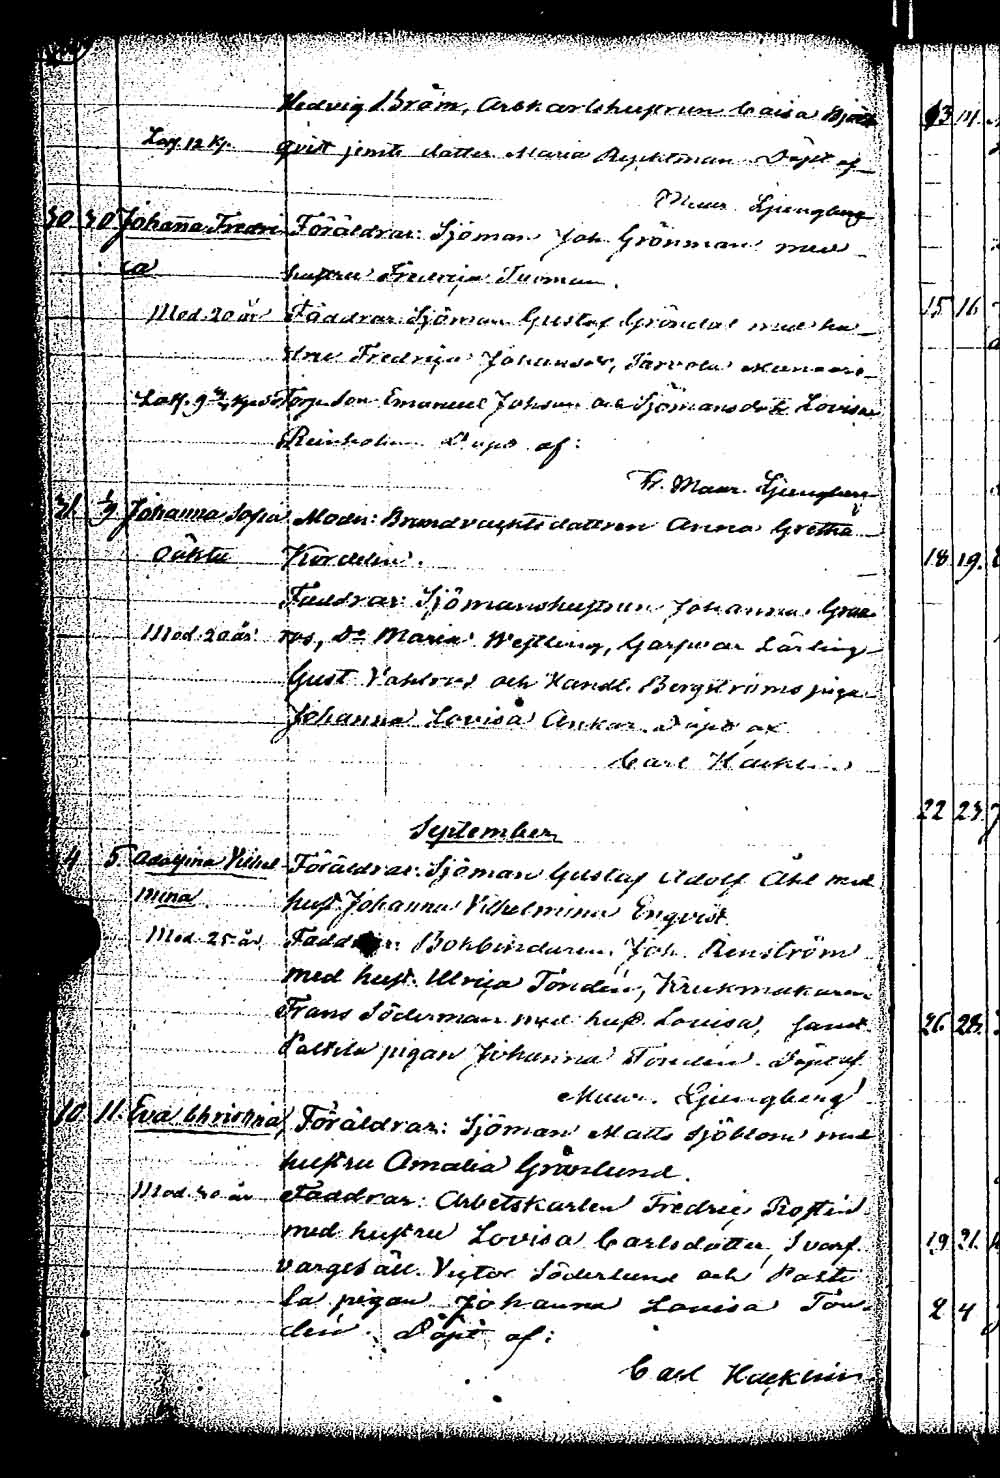 Hedvig Bröm, Arbkarlshustrun Caisa Björk
Latf. 12 Kp. qvist jemte dotter Maria Ryektman Döpt af
Maur. Ljungberg
30. 30 Johanna Fredri Föräldrar: Sjöman Joh. Grönman med
ca hustru Fredrija Tuoman.
Mod. 20 år Faddrar: Sjöman Gustaf Gröndal med hu
stru Fredrija Johansdr,
Latf. 9 son Emanuel Johson och Sjömansdotr Lovisa
Reinholm Döpt af:
Fr. Maur. Ljungberg
31. Johanna Sofia Moder: Brandvacktsdottren Anna Gretha
oäkta Nordelin.
Faddrar: Sjömanshustrun Johanna Gran
Mod. 20 år. ros, Do Maria Westling, Garfvar Lärling
Gust. Vahlros och Handl. Bergströms piga
Johanna Lovisa Ankar. Döpt af
Carl Hacklin
September
4 5. Adolfina Vilhel Föräldrar: Sjöman Gustaf Adolf Åhl med
mina hust. Johanna Vilhelmina Enqvist.
Mod. 25 år Faddrar: Bokbindaren Joh. Renström
med hust. Ulrija Tondén, Krukmakaren
Frans Söderman med hust. Lovisa, samt
Pastila pigan Johanna Tondén. Döpt af
Maur. Ljungberg
10. 11. Eva Christina, Föräldrar: Sjöman Matts Sjöblom med
hustru Amalia Grönlund.
Mod. 30 år Faddrar: Arbetskarlen Fredric Rostén
med hustru Lovisa Carlsdotter, Svarf
vargesäll. Victor Söderlund och Pasti
la pigan Johanna Lovisa Ton
dén. Döpt af:
Carl Hacklin
13 14
15 16
18 19.
22 23.
26 28.
19 21.
2 4